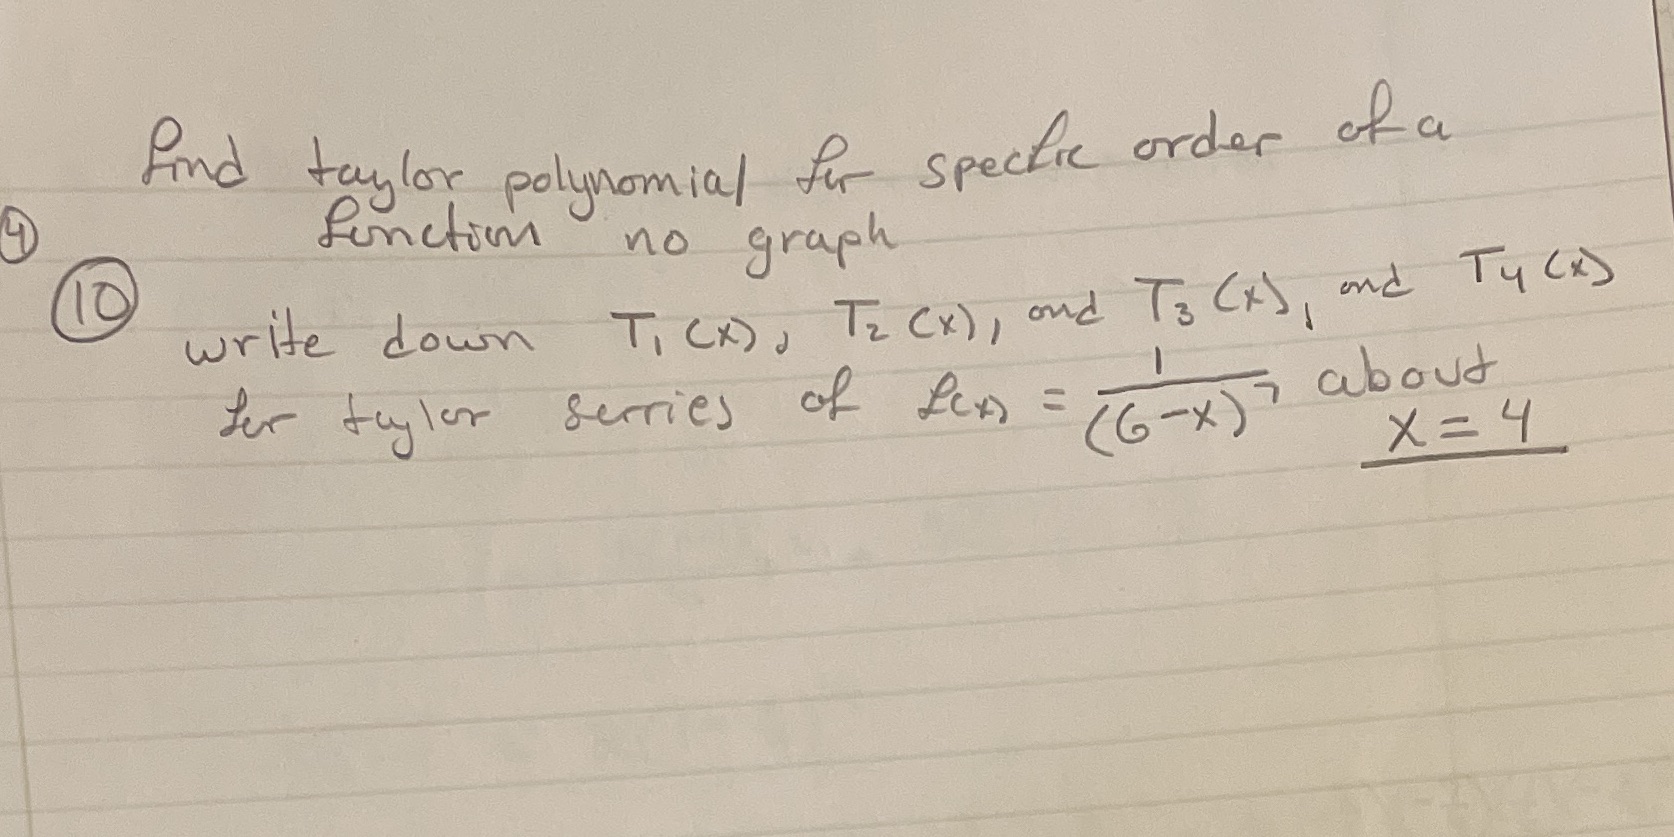 find taylor polynomial for specfic order of a
function no graph
9
10
write down T₁(x), T₂(x), and T₃(x), and T₄(x)
for taylor serries of f(x) = 1/(6-x)⁷ about
x = 4